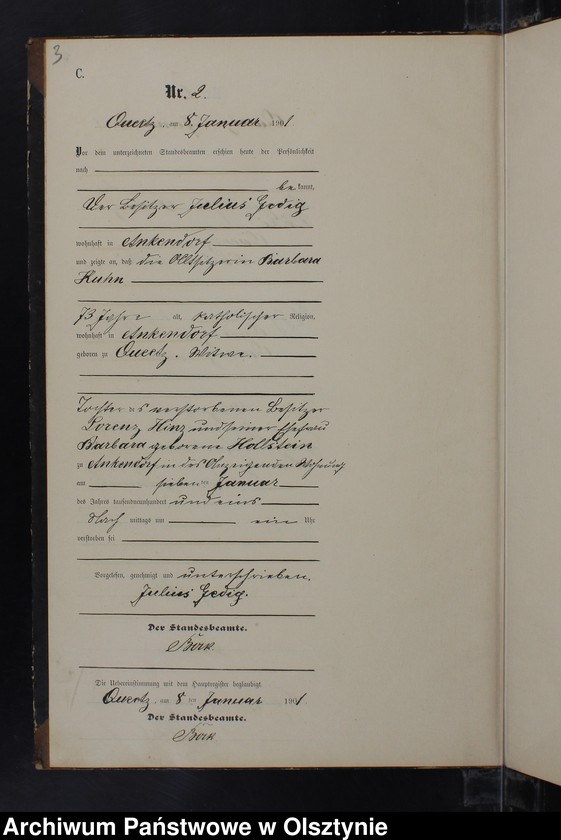 3
C.
Nr. 2.
Queetz, am 8. Januar 1901
Vor dem unterzeichneten Standesbeamten erschien heute der Persönlichkeit
nach
be kannt,
Der Besitzer Julius Gedig
wohnhaft in Ankendorf
und zeigte an, daß die Altsitzerin Barbara
Kuhn
73 Jahre alt, katholischer Religion,
wohnhaft in Ankendorf
geboren zu Queetz. Witwe.
Tochter des verstorbenen Besitzer
Lorenz Hinz und seiner Ehefrau
Barbara geborene Hallstein
zu Ankendorf in des Anzeigenden Wohnung
am sieben ten Januar
des Jahres tausendneunhundert und eins
Nach mittags um ein Uhr
verstorben sei
Vorgelesen, genehmigt und unterschrieben.
Julius Gedig.
Der Standesbeamte.
Die Uebereinstimmung mit dem Hauptregister beglaubigt
Queetz, am 8 ten Januar 1901.
Der Standesbeamte.
Archiwum Państwowe w Olsztynie